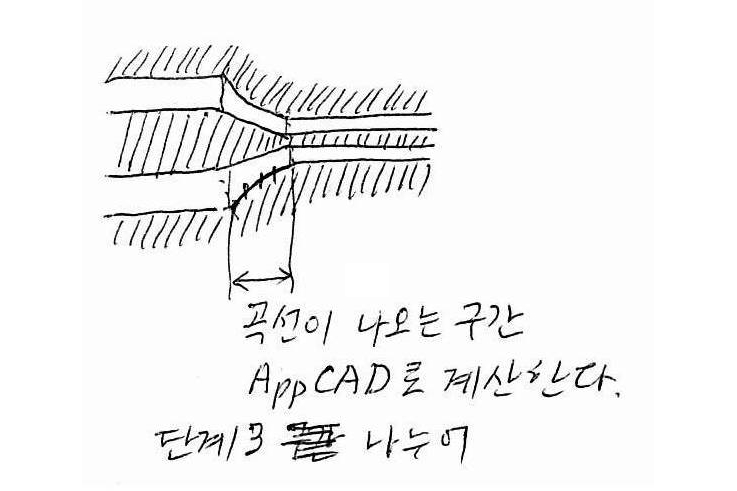 곡선이 나오는 구간
AppCAD로 계산한다.
단계3 나누어